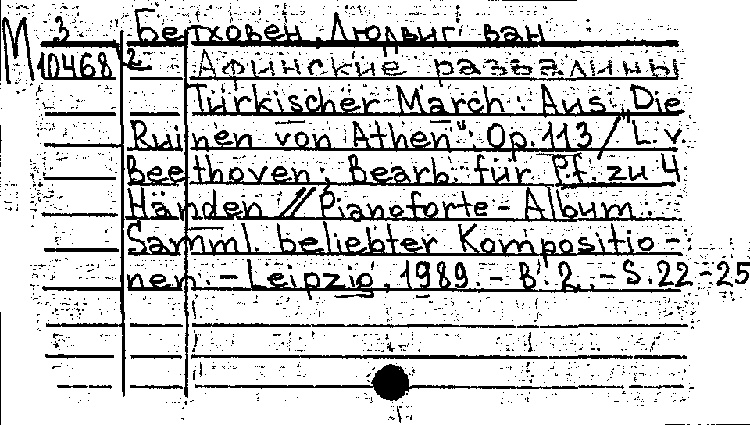 М 3 Бетховен, Людвиг ван
10468 2 Афинские развалины
Türkischer March: Aus „Die
Ruinen von Athen": Op. 113 / L. v.
Beethoven; Bearb. für Pf. zu 4
Händen // Pianoforte-Album.
Samml. beliebter Kompositio-
nen. - Leipzig, 1989. - B. 2. - S. 22-25